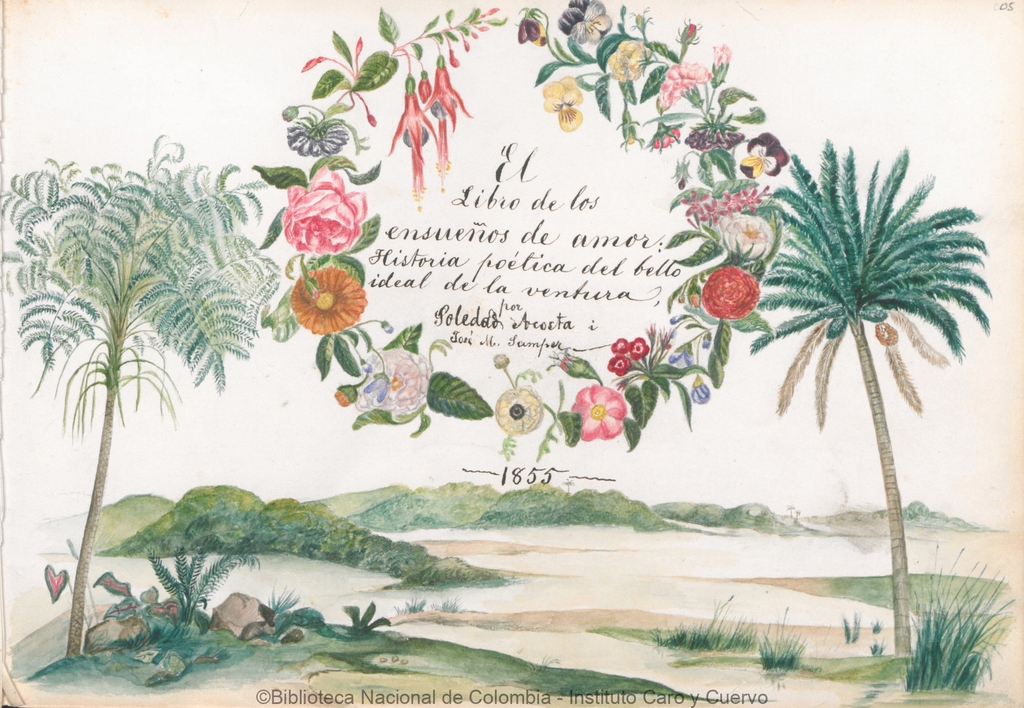 05
El
Libro de los
ensueños de amor:
Historia poética del bello
ideal de la ventura,
por
Soledad Acosta i
José M. Samper
1855
©Biblioteca Nacional de Colombia - Instituto Caro y Cuervo